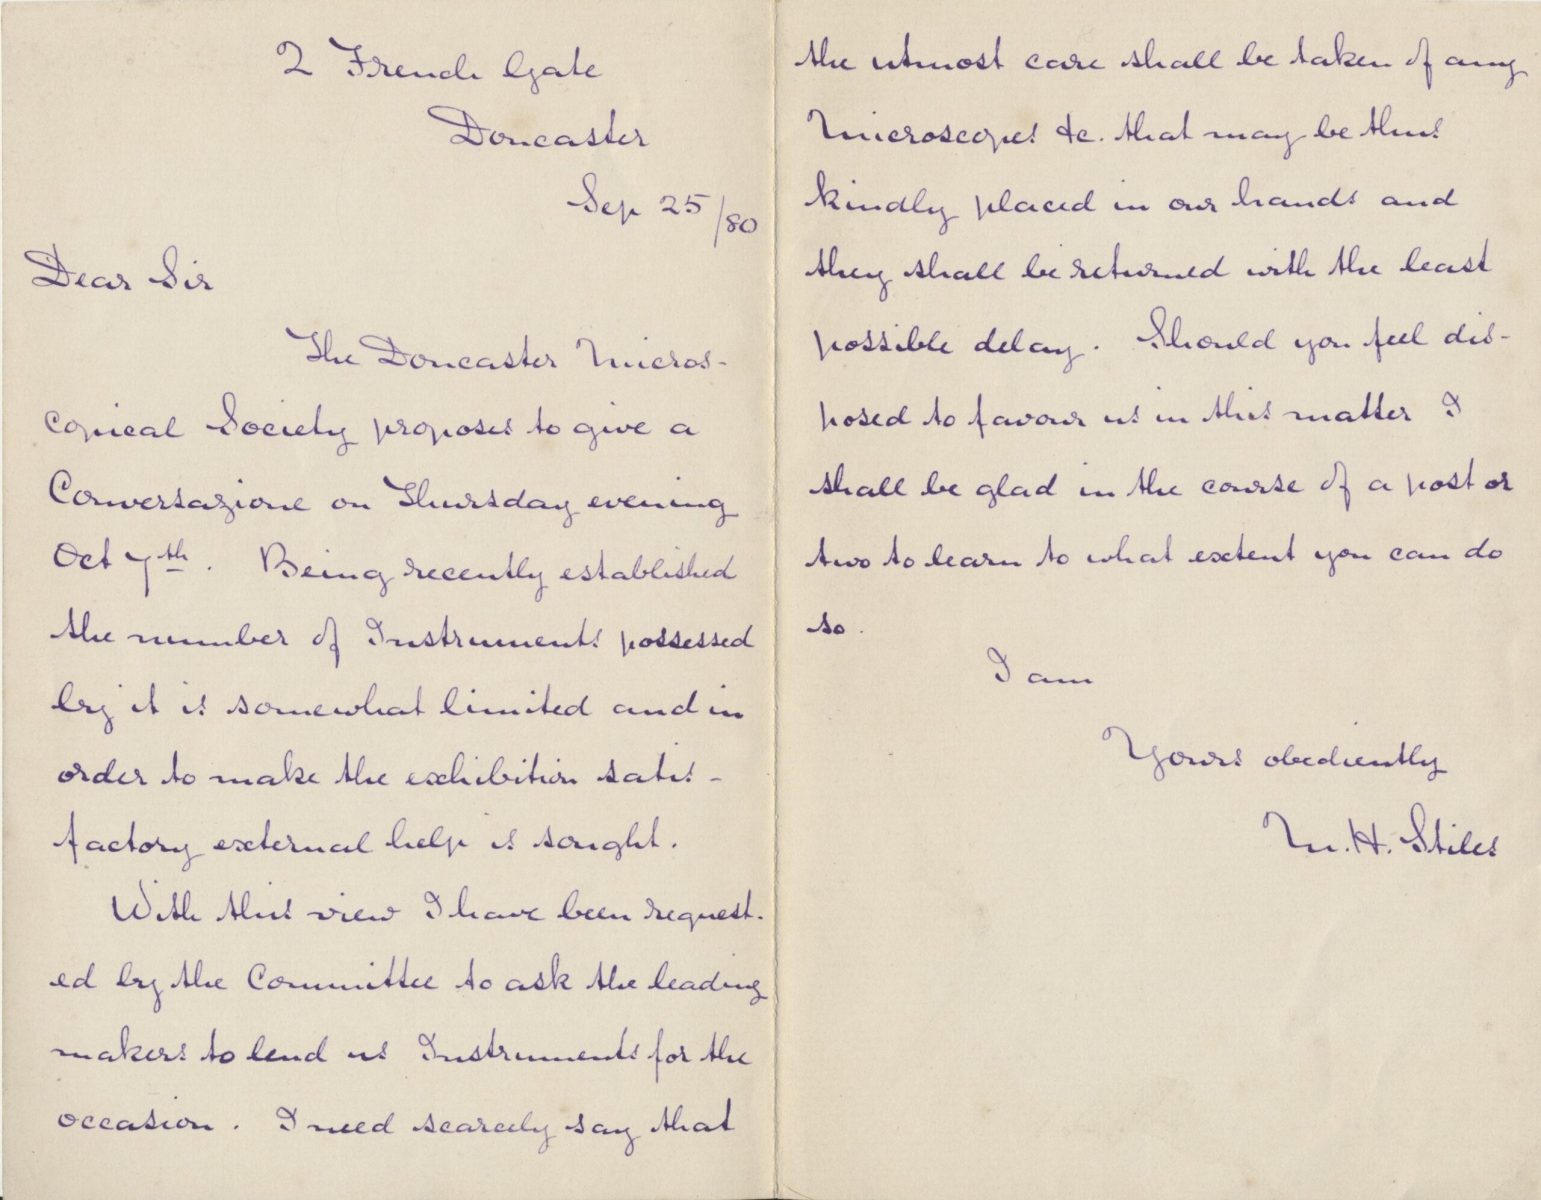 2 French Gate
Doncaster
Sep 25/80
Dear Sir
The Doncaster Micros-
copical Society proposes to give a
Conversazione on Thursday evening
Oct 7th. Being recently established
the number of Instruments possessed
by it is somewhat limited and in
order to make the exhibition satis-
factory external help is sought.
With this view I have been request-
ed by the Committee to ask the leading
makers to lend us Instruments for the
occasion. I need scarcely say that
the utmost care shall be taken of any
Microscopes &c. that may be thus
kindly placed in our hands and
they shall be returned with the least
possible delay. Should you feel dis-
posed to favour us in this matter I
shall be glad in the course of a post or
two to learn to what extent you can do
so.
I am
Yours obediently
M. H. Stiles